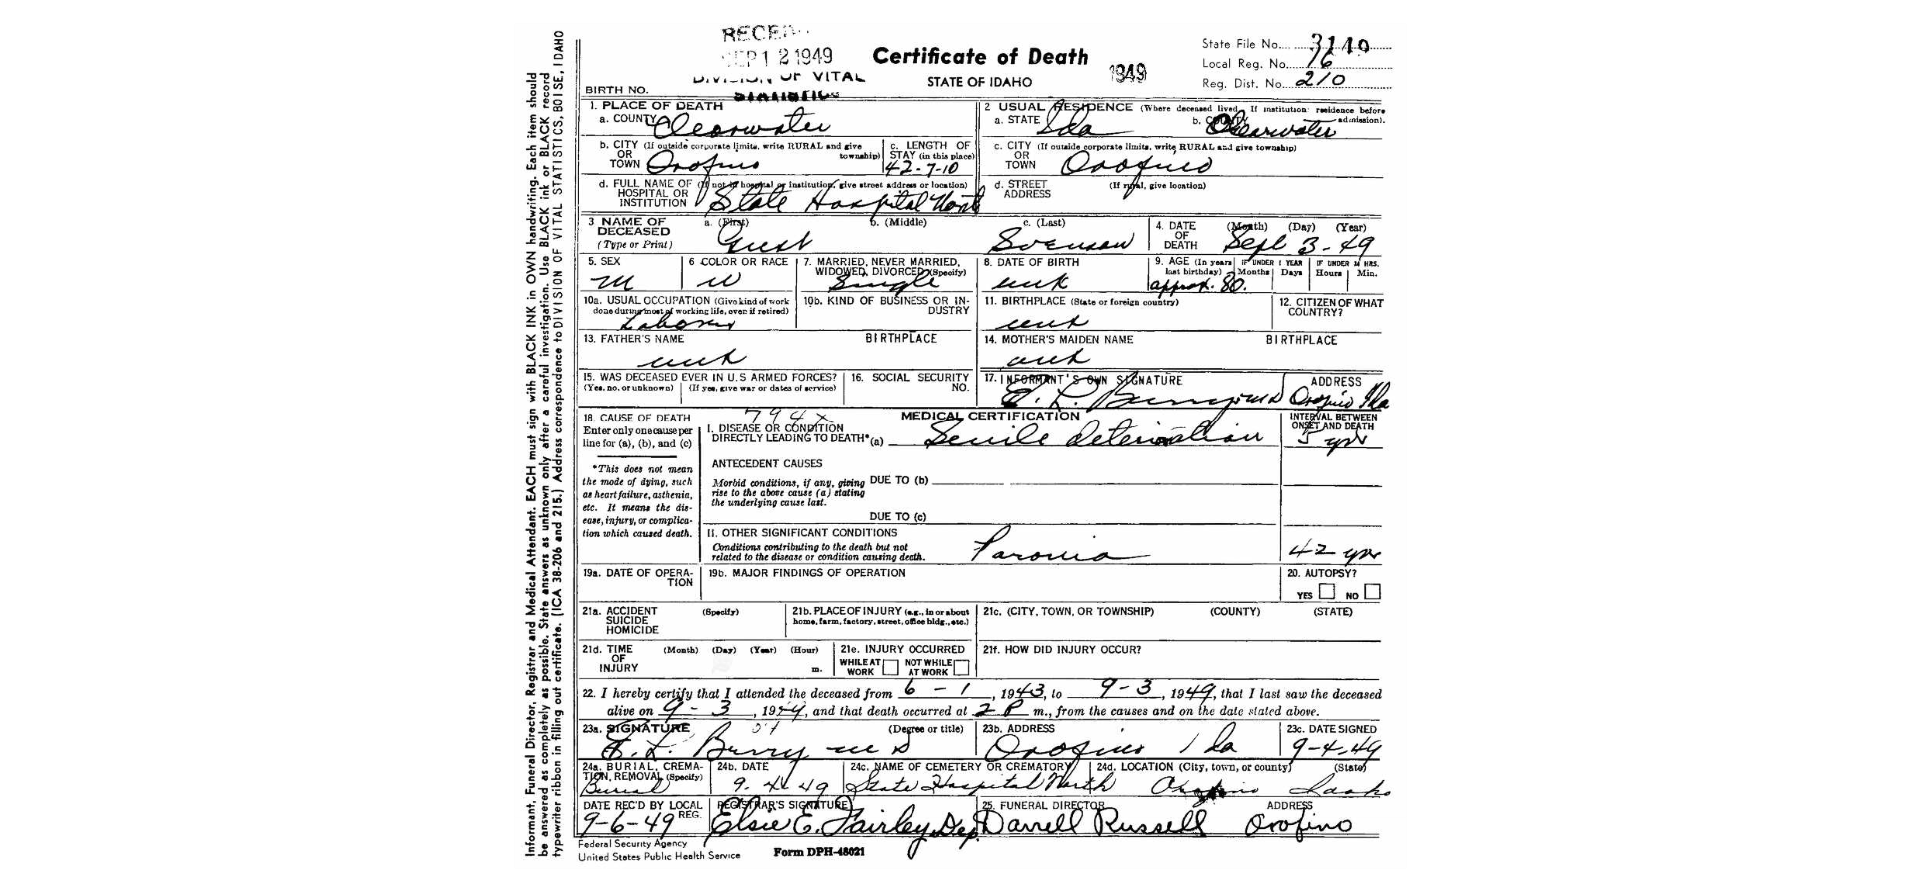 RECE
SEP 12 1949
DIVISION OF VITAL
STATISTICS
Certificate of Death
STATE OF IDAHO
1949
State File No. 3140
Local Reg. No. 16
Reg. Dist. No. 210
BIRTH NO.
Informant, Funeral Director, Registrar and Medical Attendant. EACH must sign with BLACK INK in OWN handwriting. Each item should
be answered as completely as possible. State answers as unknown only after a careful investigation. Use BLACK ink or BLACK record
typewriter ribbon in filling out certificate. (ICA 38-206 and 215.) Address correspondence to DIVISION OF VITAL STATISTICS, BOISE, IDAHO
1. PLACE OF DEATH
a. COUNTY Clearwater
2 USUAL RESIDENCE (Where deceased lived. If institution: residence before admission).
a. STATE Ida b. COUNTY Clearwater
b. CITY (If outside corporate limits, write RURAL and give township) OR TOWN Orofino
c. LENGTH OF STAY (in this place) 42-7-10
c. CITY (If outside corporate limits, write RURAL and give township) OR TOWN Orofino
d. FULL NAME OF (If not in hospital or institution, give street address or location) HOSPITAL OR INSTITUTION State Hospital North
d. STREET ADDRESS (If rural, give location)
3 NAME OF DECEASED (Type or Print)
a. (First) Gust b. (Middle) c. (Last) Svenson
4. DATE OF DEATH (Month) (Day) (Year) Sept 3-49
5. SEX M
6 COLOR OR RACE W
7. MARRIED, NEVER MARRIED, WIDOWED, DIVORCED (Specify) Single
8. DATE OF BIRTH unk
9. AGE (In years last birthday) approx. 80. IF UNDER 1 YEAR Months Days IF UNDER 24 HRS. Hours Min.
10a. USUAL OCCUPATION (Give kind of work done during most of working life, even if retired) Laborer
10b. KIND OF BUSINESS OR INDUSTRY
11. BIRTHPLACE (State or foreign country) unk
12. CITIZEN OF WHAT COUNTRY?
13. FATHER'S NAME unk BIRTHPLACE
14. MOTHER'S MAIDEN NAME unk BIRTHPLACE
15. WAS DECEASED EVER IN U.S ARMED FORCES? (Yes, no, or unknown) (If yes, give war or dates of service)
16. SOCIAL SECURITY NO.
17. INFORMANT'S OWN SIGNATURE ADDRESS Orofino Ida
18. CAUSE OF DEATH
Enter only one cause per
line for (a), (b), and (c)
*This does not mean
the mode of dying, such
as heart failure, asthenia,
etc. It means the dis-
ease, injury, or complica-
tion which caused death.
794x
MEDICAL CERTIFICATION
INTERVAL BETWEEN ONSET AND DEATH
I. DISEASE OR CONDITION
DIRECTLY LEADING TO DEATH* (a) Senile deterioration 5 yrs
ANTECEDENT CAUSES
Morbid conditions, if any, giving
rise to the above cause (a) stating
the underlying cause last.
DUE TO (b)
DUE TO (c)
II. OTHER SIGNIFICANT CONDITIONS
Conditions contributing to the death but not
related to the disease or condition causing death.
Paronia 42 yrs
19a. DATE OF OPERATION
19b. MAJOR FINDINGS OF OPERATION
20. AUTOPSY?
YES NO
21a. ACCIDENT SUICIDE HOMICIDE (Specify)
21b. PLACE OF INJURY (e.g., in or about home, farm, factory, street, office bldg., etc.)
21c. (CITY, TOWN, OR TOWNSHIP) (COUNTY) (STATE)
21d. TIME OF INJURY (Month) (Day) (Year) (Hour) m.
21e. INJURY OCCURRED
WHILE AT WORK NOT WHILE AT WORK
21f. HOW DID INJURY OCCUR?
22. I hereby certify that I attended the deceased from 6-1, 1943, to 9-3, 1949, that I last saw the deceased
alive on 9-3, 1949, and that death occurred at 2 P m., from the causes and on the date stated above.
23a. SIGNATURE (Degree or title) M D
23b. ADDRESS Orofino Ida
23c. DATE SIGNED 9-4-49
24a. BURIAL, CREMATION, REMOVAL (Specify) Burial
24b. DATE 9-4-49
24c. NAME OF CEMETERY OR CREMATORY State Hospital North
24d. LOCATION (City, town, or county) (State) Orofino Idaho
DATE REC'D BY LOCAL REG. 9-6-49
REGISTRAR'S SIGNATURE Elsie E. Fairley Dep
25. FUNERAL DIRECTOR Darrell Russell ADDRESS Orofino
Federal Security Agency
United States Public Health Service
Form DPH-48021